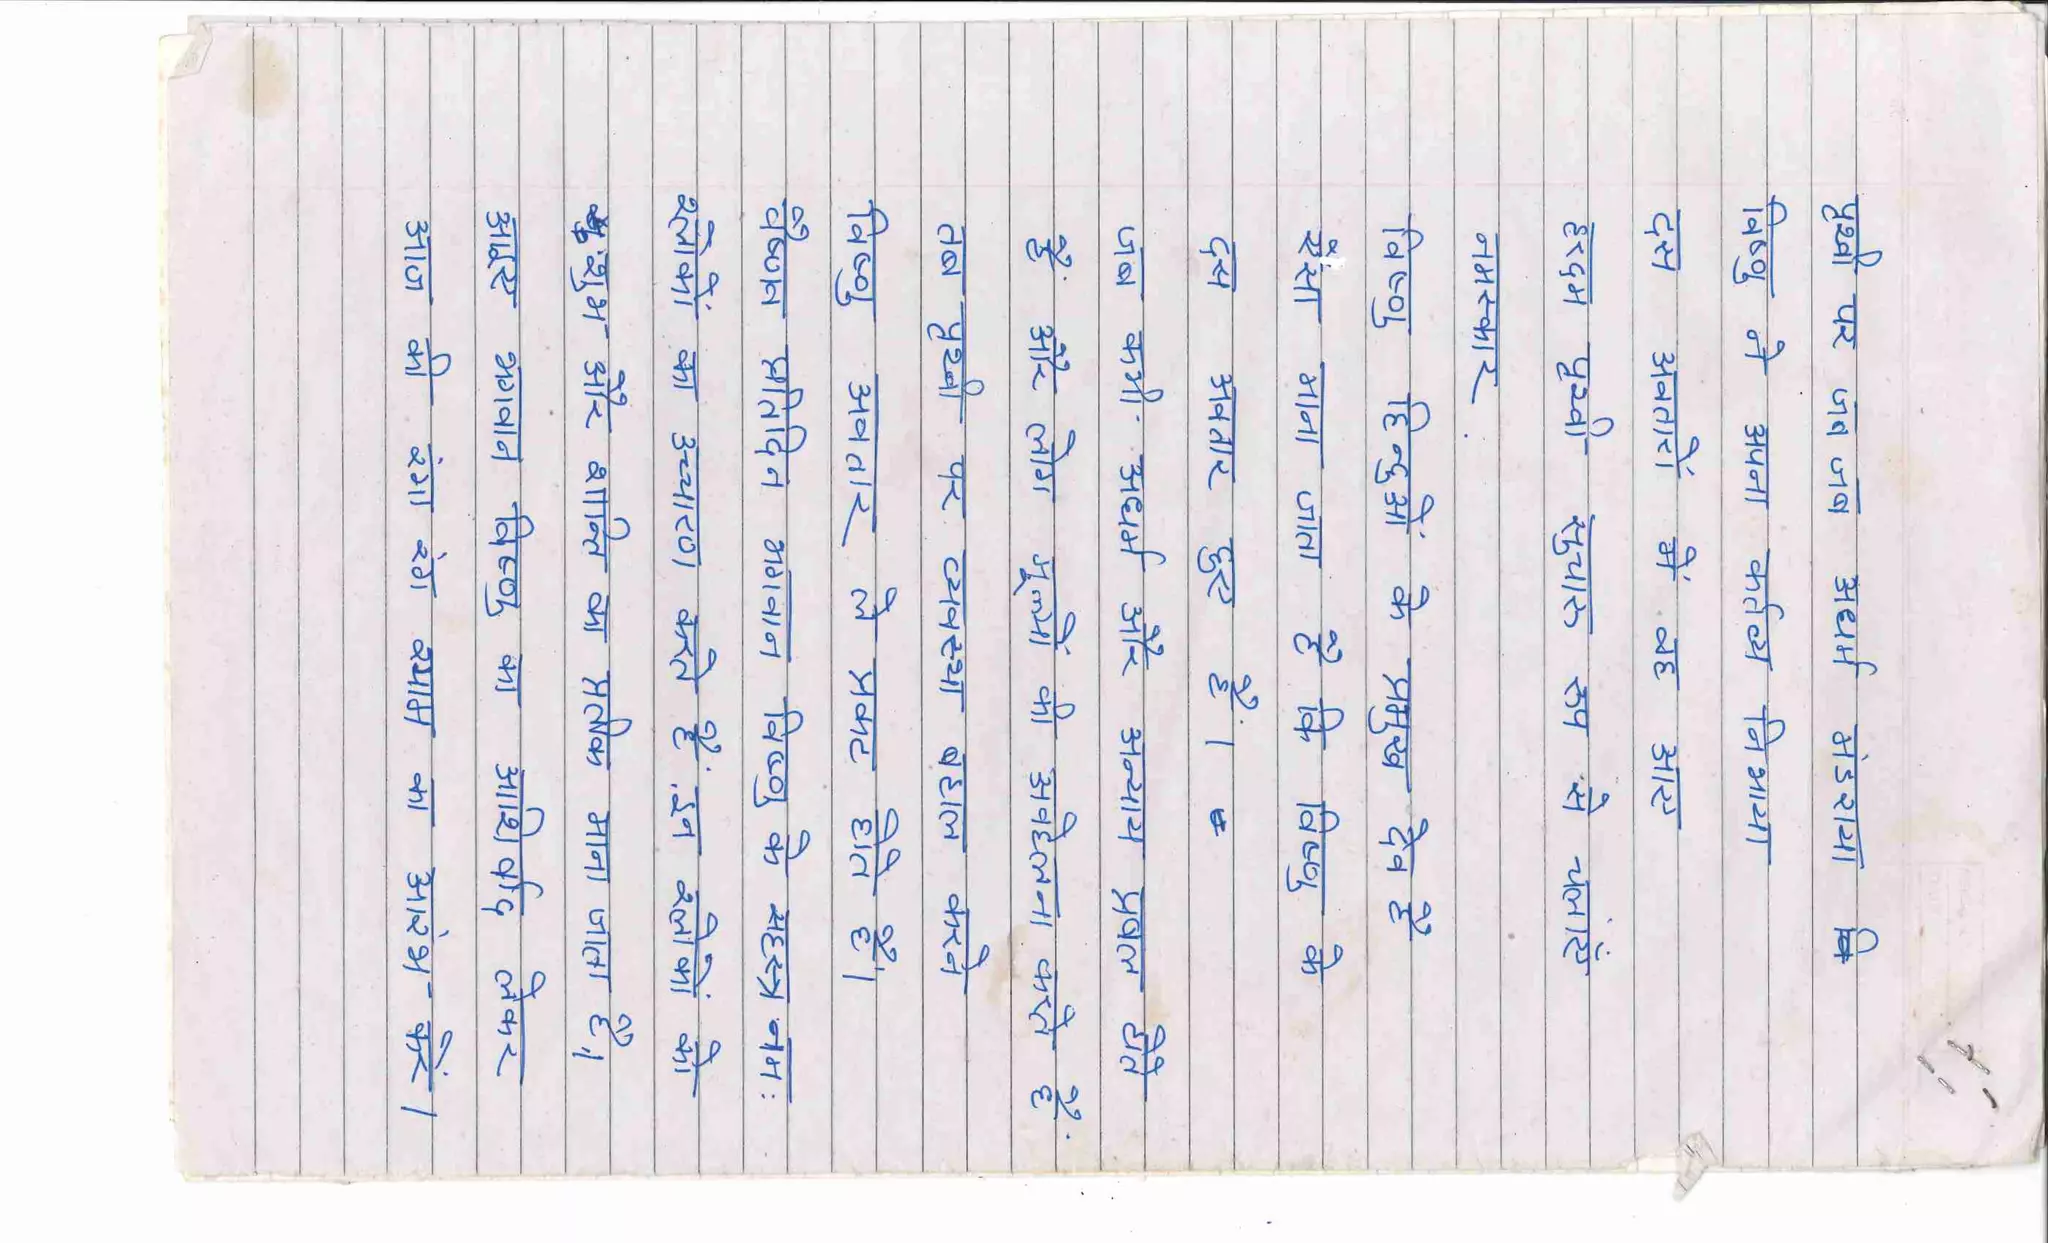 पृथ्वी पर जब जब अधर्म मंडराया
विष्णु ने अपना कर्तव्य निभाया
दस अवतारों में वह आए
हरदम पृथ्वी सुचारु रुप से चलाएं
नमस्कार.
विष्णु हिन्दुओं के प्रमुख देव हैं
ऐसा माना जाता है कि विष्णु के
दस अवतार हुए हैं।
जब कभी अधर्म और अन्याय प्रबल होते
हैं और लोग मूल्यों की अवहेलना करते हैं.
तब पृथ्वी पर व्यवस्था बहाल करने
विष्णु अवतार ले प्रकट होते हैं।
वैष्णव प्रतिदिन भगवान विष्णु के सहस्त्र नाम:
श्लोकों का उच्चारण करते हैं. इन श्लोकों को
शुभ और शान्ति का प्रतीक माना जाता है।
आइए भगवान विष्णु का आशिर्वाद लेकर
आज की रंगा रंग श्याम का आरंभ करें।